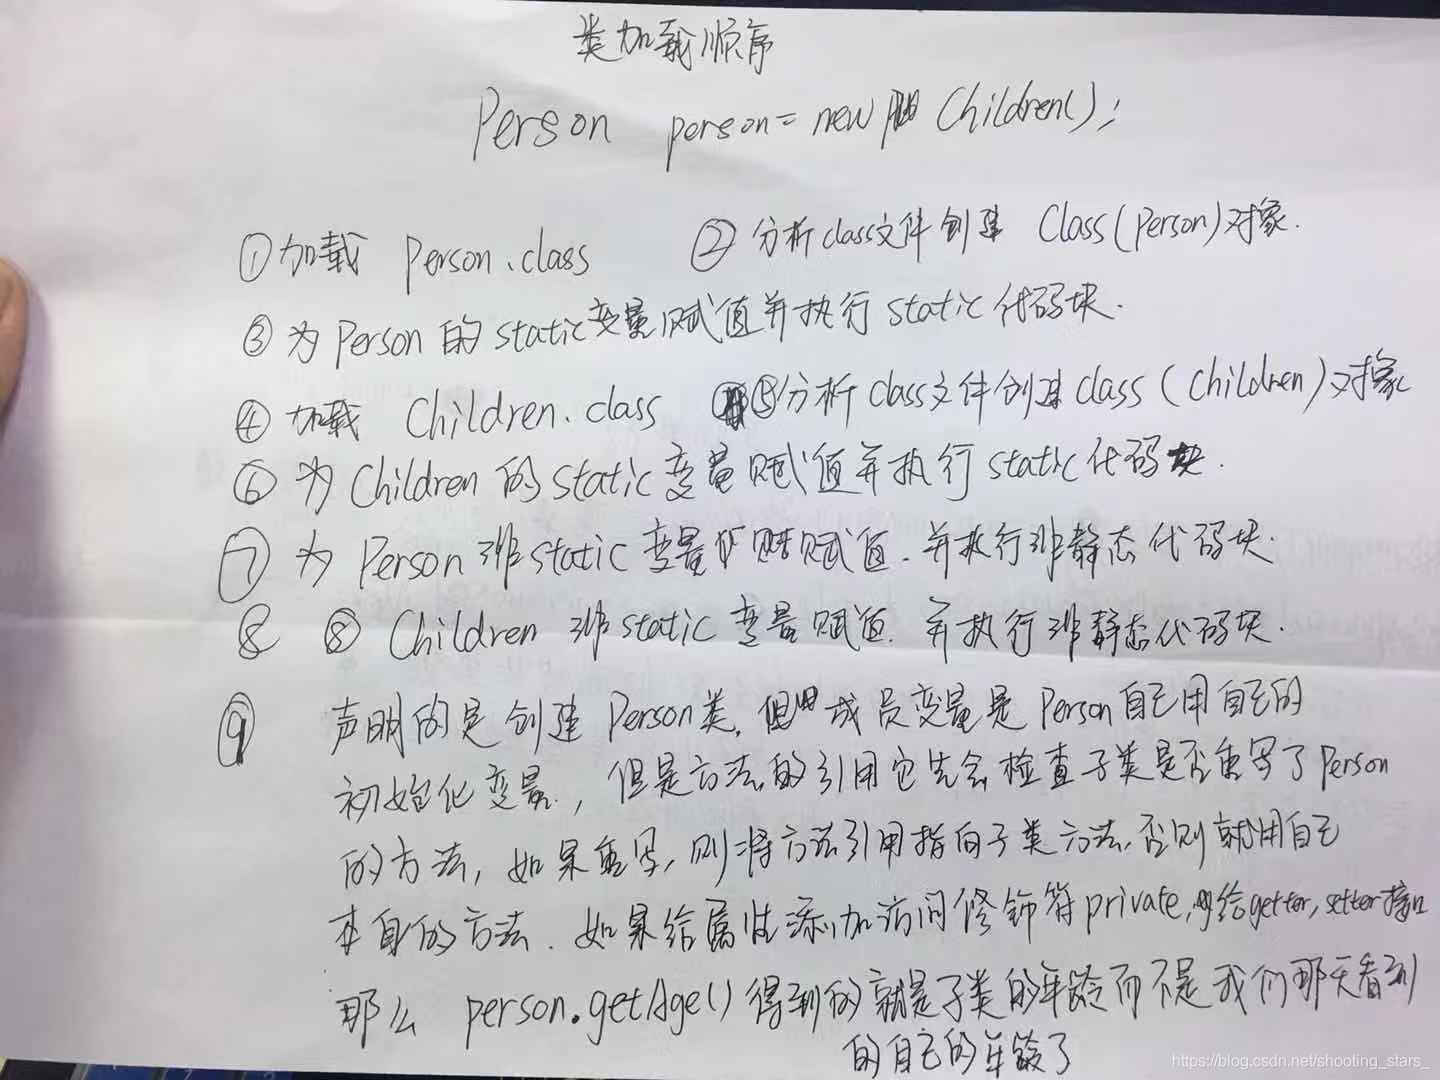 类加载顺序
Person person = new Children();
①加载 Person.class ②分析class文件创建 Class(Person)对象.
③为Person的static变量赋值并执行static代码块.
④加载 Children.class ⑤分析class文件创建class(Children)对象
⑥为Children的static变量赋值并执行static代码块.
⑦为Person非static变量赋值.并执行非静态代码块.
8 ⑧Children非static变量赋值.并执行非静态代码块.
⑨声明的是创建Person类,但成员变量是Person自己用自己的
初始化变量.,但是方法的引用它先会检查子类是否重写了Person
的方法,如果重写,则将方法引用指向子类方法.否则就用自己
本身的方法.如果给属性添加访问修饰符private,给getter,setter接口
那么 person.getAge()得到的就是子类的年龄而不是我们那天看到
的自己的年龄了
https://blog.csdn.net/shooting_stars_